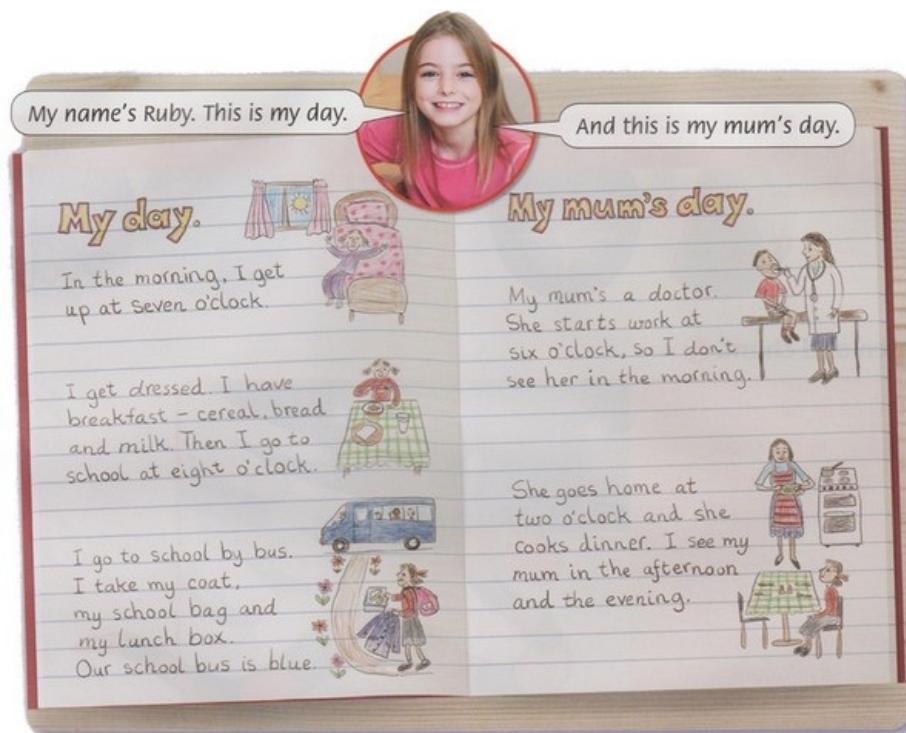 My name's Ruby. This is my day.
And this is my mum's day.
My day.
In the morning, I get
up at seven o'clock.
I get dressed. I have
breakfast – cereal, bread
and milk. Then I go to
school at eight o'clock.
I go to school by bus.
I take my coat,
my school bag and
my lunch box.
Our school bus is blue.
My mum's day.
My mum's a doctor.
She starts work at
six o'clock, so I don't
see her in the morning.
She goes home at
two o'clock and she
cooks dinner. I see my
mum in the afternoon
and the evening.